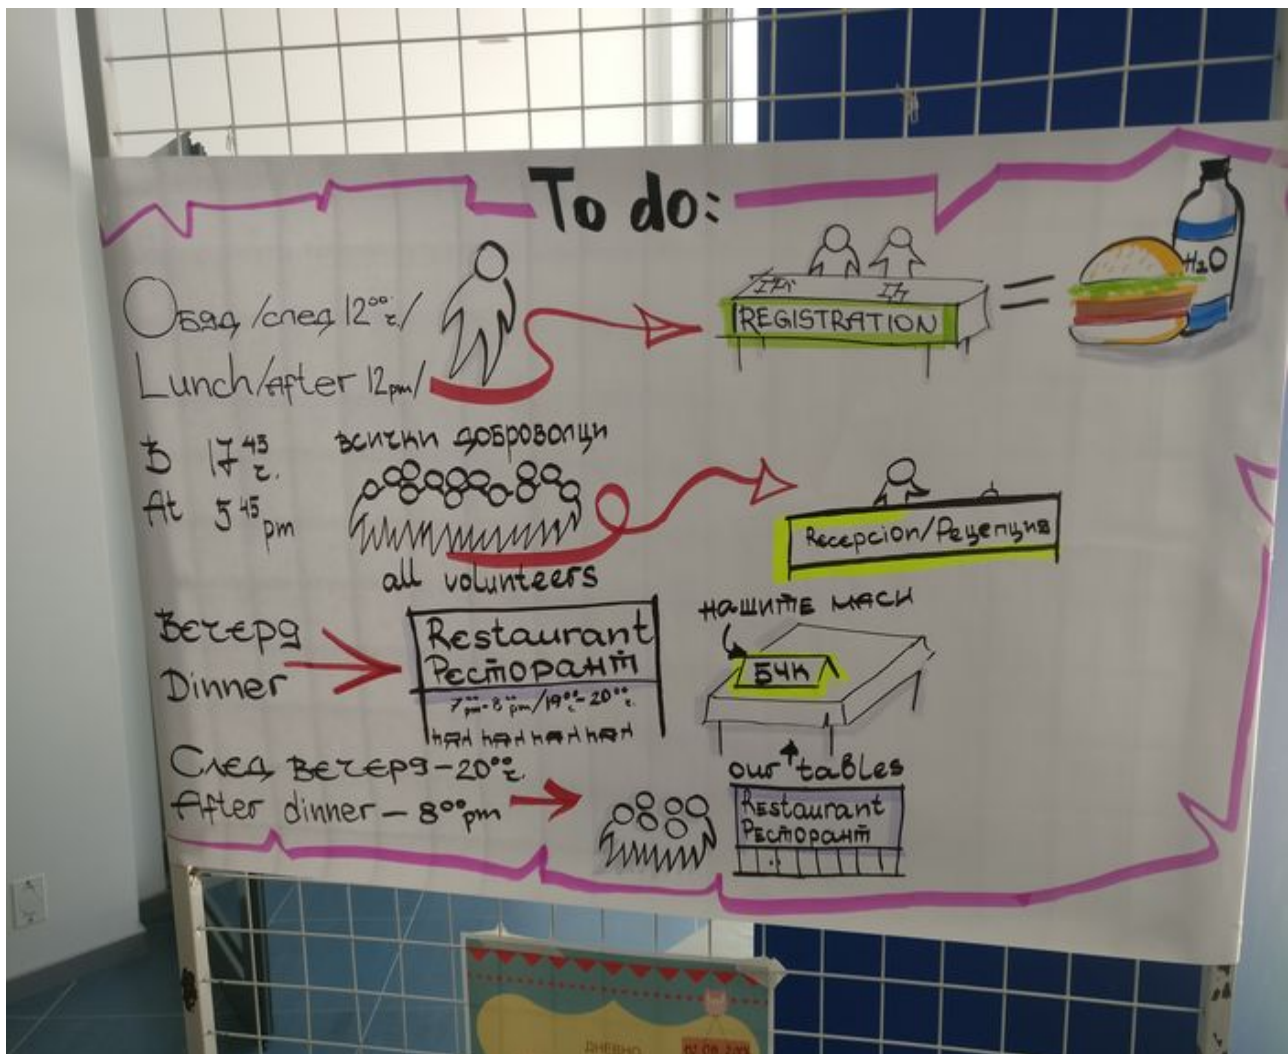 To do:
Обяд /след 12⁰⁰ч./
Lunch/After 12pm/
REGISTRATION
=
H₂O
В 17⁴⁵ч.
At 5⁴⁵pm
всички доброволци
all volunteers
Recepcion/Рецепция
Вечеря
Dinner
Restaurant
Ресторант
7⁰⁰pm-8⁰⁰pm/19⁰⁰ч-20⁰⁰ч.
нашите маси
БЧК
our tables
След вечеря-20⁰⁰ч.
After dinner-8⁰⁰pm
Restaurant
Ресторант
ДНЕВНО